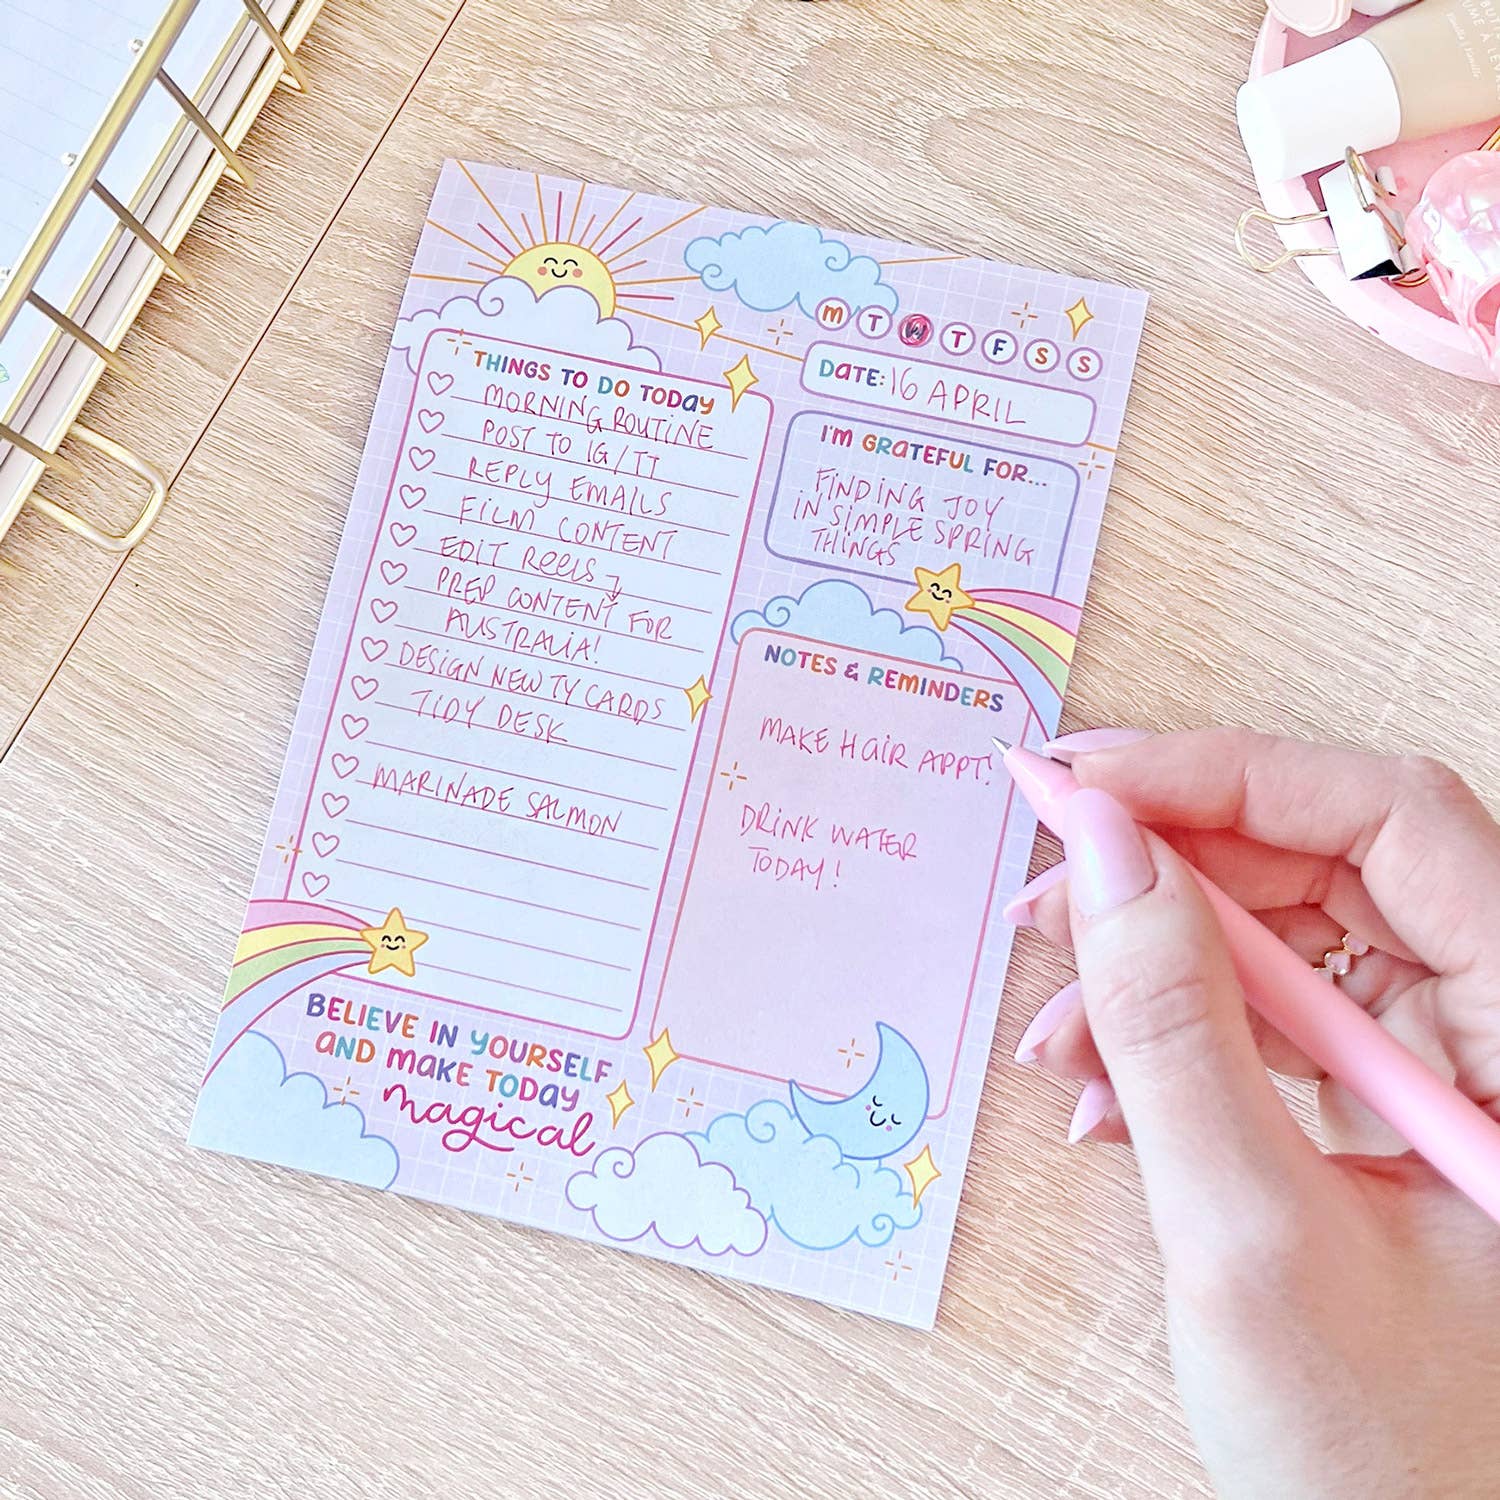 M T W T F S S
DATE: 16 APRIL
THINGS TO DO TODAY
MORNING ROUTINE
POST TO IG/TT
REPLY EMAILS
FILM CONTENT
EDIT REELS
PREP CONTENT FOR
AUSTRALIA!
DESIGN NEW TY CARDS
TIDY DESK
MARINADE SALMON
I'M GRATEFUL FOR...
FINDING JOY
IN SIMPLE SPRING
THINGS
NOTES & REMINDERS
MAKE HAIR APPT!
DRINK WATER
TODAY!
BELIEVE IN YOURSELF
AND MAKE TODAY
magical